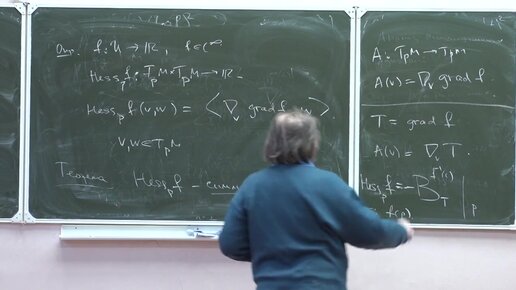 Опр. f: M → ℝ, f ∈ C^∞
Hess_p f : T_pM × T_pM → ℝ
Hess_p f (v, w) = ⟨∇_v grad f, w⟩.
v, w ∈ T_pM
Теорема Hess_p f – симм
A : T_pM → T_pM
A(v) = ∇_v grad f
T = grad f
A(v) = ∇_v T.
Hess_p f = -B_T
f(p)
p